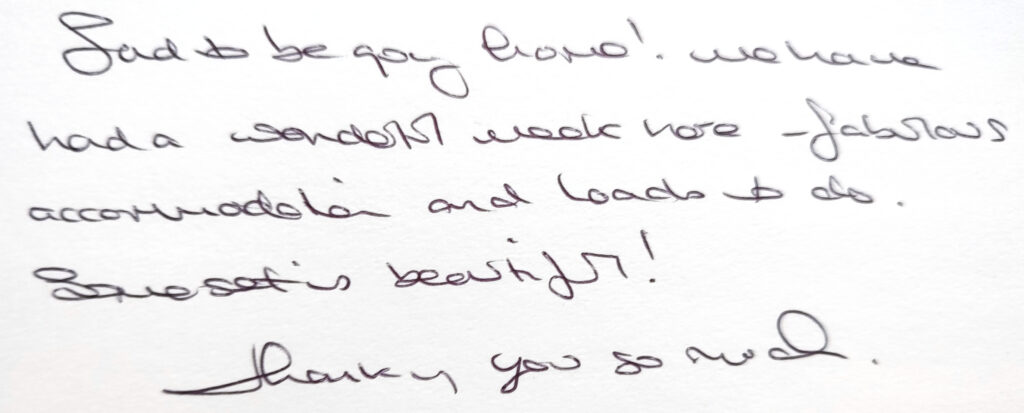 Sad to be going home! We have
had a wonderful week here - fabulous
accommodation and loads to do.
Somerset is beautiful!
Thank you so much.